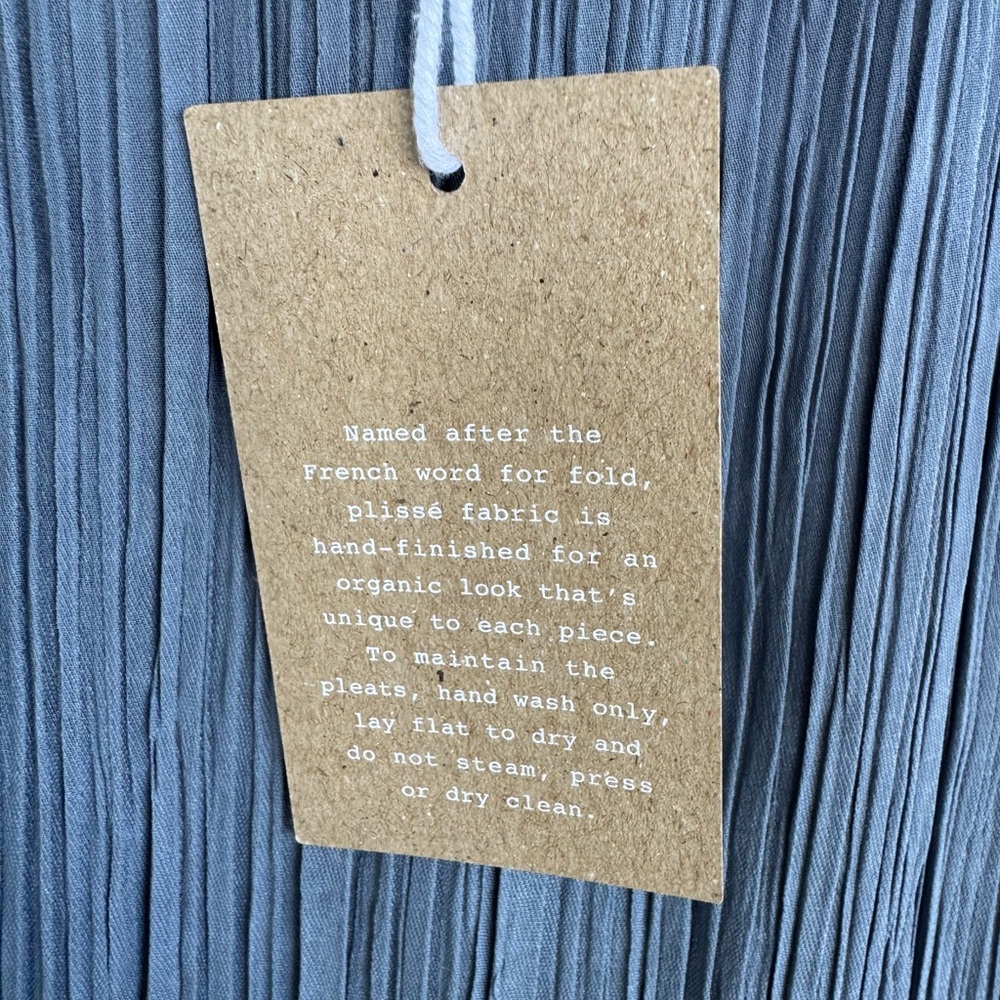 Named after the
French word for fold,
plissé fabric is
hand-finished for an
organic look that's
unique to each piece.
To maintain the
pleats, hand wash only,
lay flat to dry and
do not steam, press
or dry clean.